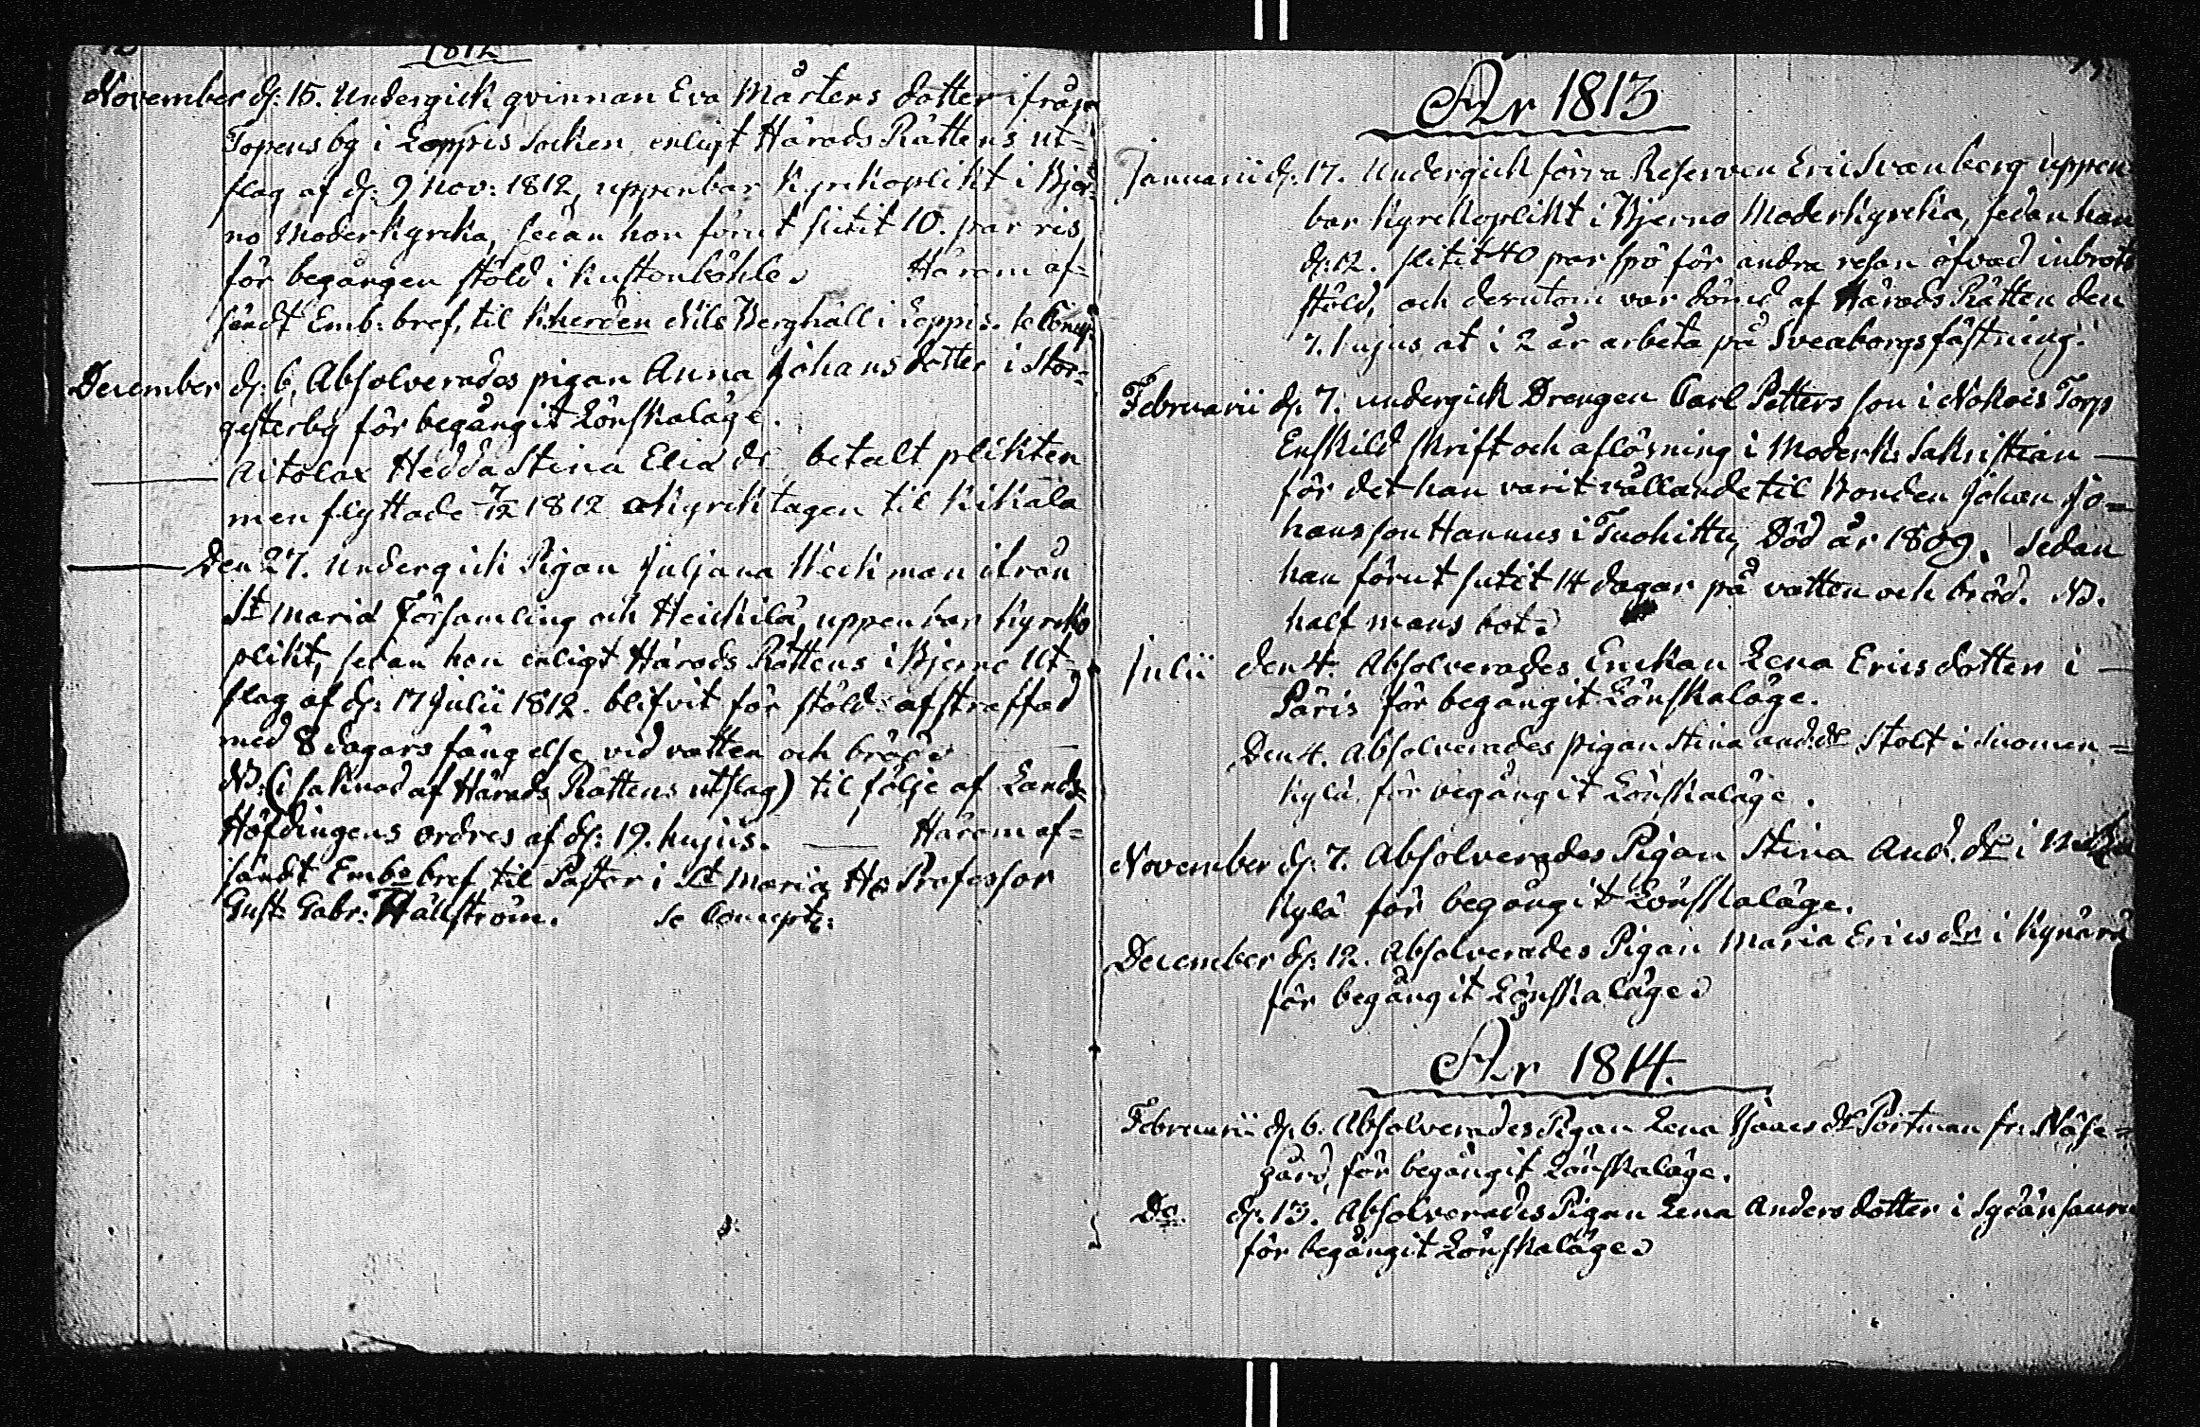 1812
November d. 15. Undergick qvinnan Eva Mårtens dotter ifrån
Topensby i Loppis Socken enligt Härads Rättens ut-
slag af d. 9 Nov: 1812, uppenbar kyrkoplikt i Bjer-
no Moderkyrcka, sedan hon förut slitit 10. par ris
för begången stöld i Kustonkåhle. Härom af-
sändt Emb: bref, til kherden Nils Berghäll i Loppis. se Concept.
December d. 6. Absolverades pigan Anna Johans dotter i Stor-
gesterby för begångit Lönskaläge.
Aitolax Hedda Stina Elia dr betalt plikten
men flyttade 7/12 1812 okyrcktagen til Kikala
Den 27. Undergick Pigan Juljana Weckman ifrån
St Mariæ Församling och Heickilä, uppenbar kyrcko
plikt, sedan hon enligt Härads Rättens i Bjerno Ut-
slag af d. 17 Julii 1812. blifvit för stöld afstraffad
med 8 dagars fängelse vid vatten och bröd.
NB. (i saknad af Härads Rättens utslag) til följe af Lands-
Höfdingens ordres af d: 19. hujus. Härom af-
sändt Embe bref til Pastor i St Mariæ Hr Professor
Gust: Gabr: Hällström. se Concept:
År 1813
Januarii d. 17. Undergick förra Reserven Eric Svanberg uppen-
bar kyrckoplikt i Bjerno Moderkyrcka, sedan han
d: 12. slitit 40 par spö för andra resan öfvad inbrots
stöld, och desutom var dömd af Härads Rätten den
7. hujus at i 2 år arbeta på Sveaborgs fästning.
Februarii d. 7. undergick Drengen Carl Petters son i Nokois Torp
Enskild skrift och aflösning i Moderk: Sakristian
för det han varit vållande til Bonden Johan Jo-
hans son Hannus i Tuohittu, Död år 1809. Sedan
han förut sutit 14 dagar på vatten och bröd. NB.
half mans bot.
Julii den 4. Absolverades Enckan Lena Erics dotter i
Päris för begångit Lönskaläge.
Den 4. Absolverades pigan Stina and. dr Stolt i Suomen-
kylä för begångit Lönskaläge.
November d. 7. Absolverades Pigan Stina And. dr i
kylä för begångit Lönskaläge.
December d. 12. Absolverades Pigan Maria Erics dr i Kynärä
för begångit Lönskaläge.
År 1814.
Februarii d. 6. Absolverades Pigan Lena dr Portman fr. Näse-
gård, för begångit Lönskaläge.
Do. d. 13. Absolverades Pigan Lena Anders dotter i Sydänsauru
för begångit Lönskaläge.